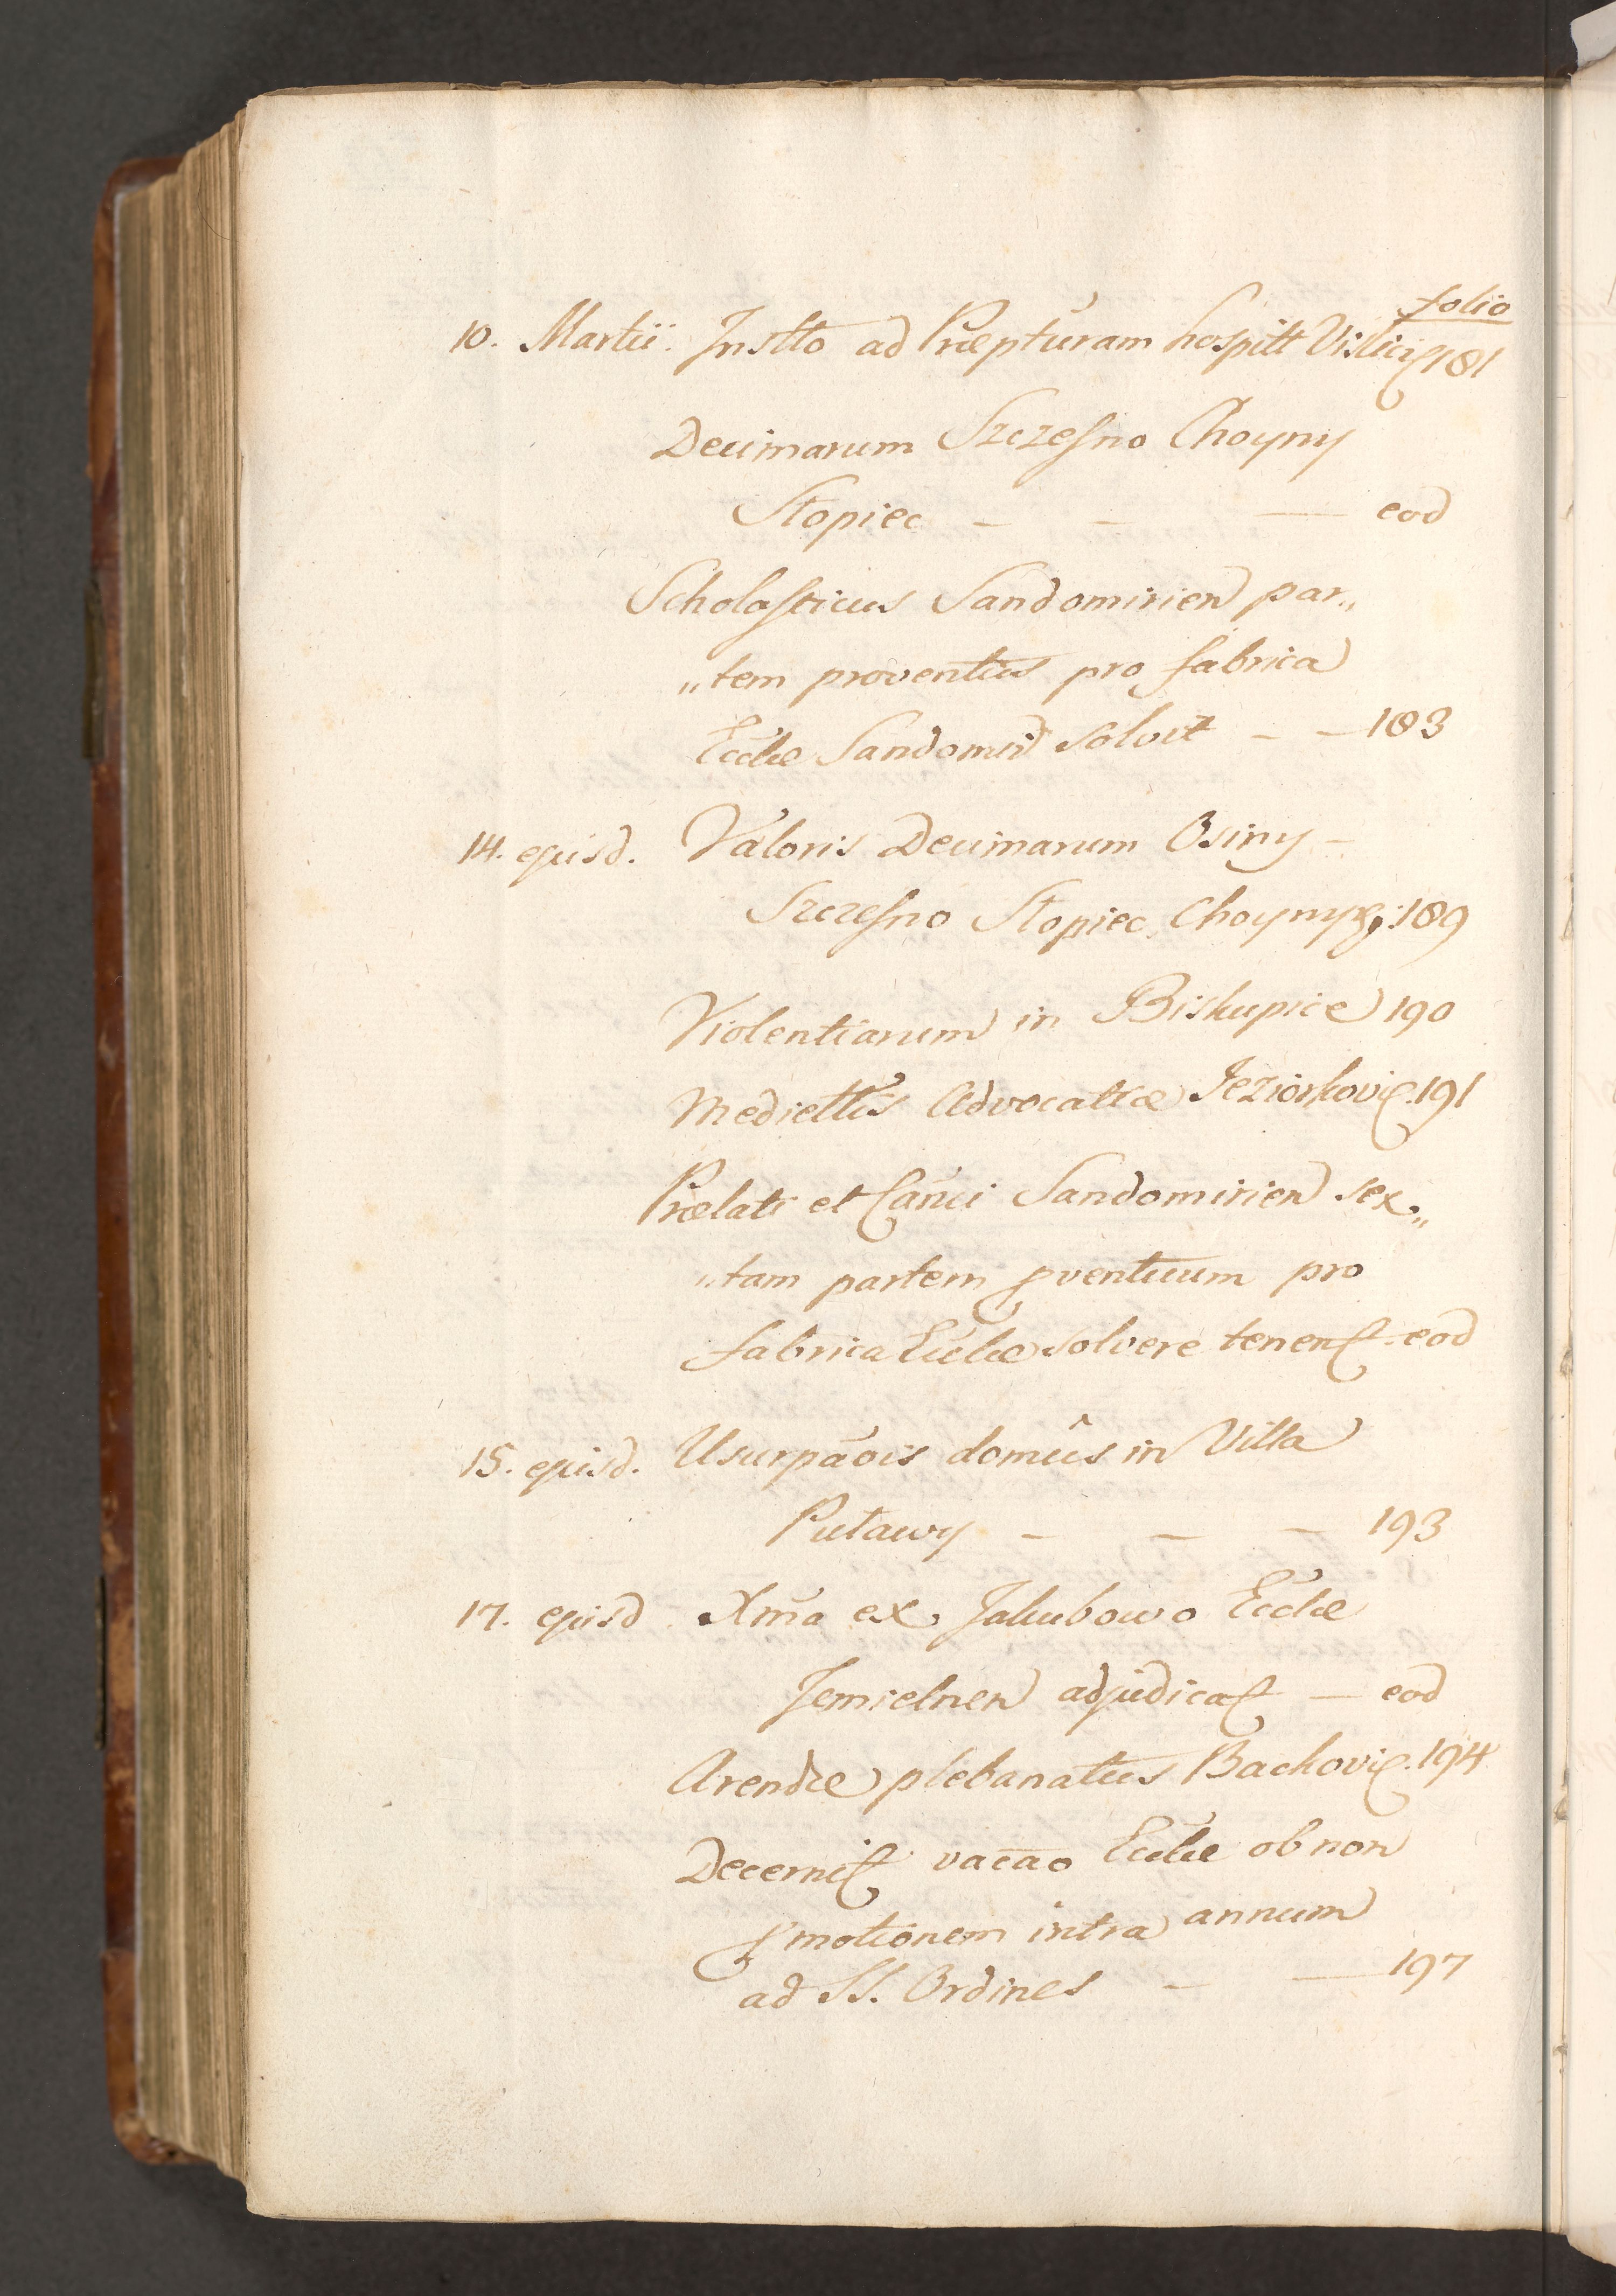 folio
10. Martii. Instto ad Præpturam hospitt Vislicię 181
Decimarum Szczesno Choyny
Stopiec - - - eod
Scholasticus Sandomirien par„
„tem proventus pro fabrica
Ecclæ Sandomir solvit - - 183
14. ejusd. Valoris Decimarum Osiny -
Szczesno Stopiec Choyny 189
Violentiarum in Biskupice 190
Mediettis Advocatiæ Jeziorkovię. 191
Prælati et Canci Sandomirien sex„
„tam partem pventuum pro
fabrica Ecclæ solvere tenent eod
15. ejusd. Usurpaōis domûs in Villa
Putawy - - - 193
17. ejusd Xma ex Jakubowo Ecclæ
Jemielnen adjudicat - eod
Arendæ plebanatus Backovię. 194
Decernit vacāo Ecclæ ob non
pmotionem intra annum
ad SS. Ordines - - 197